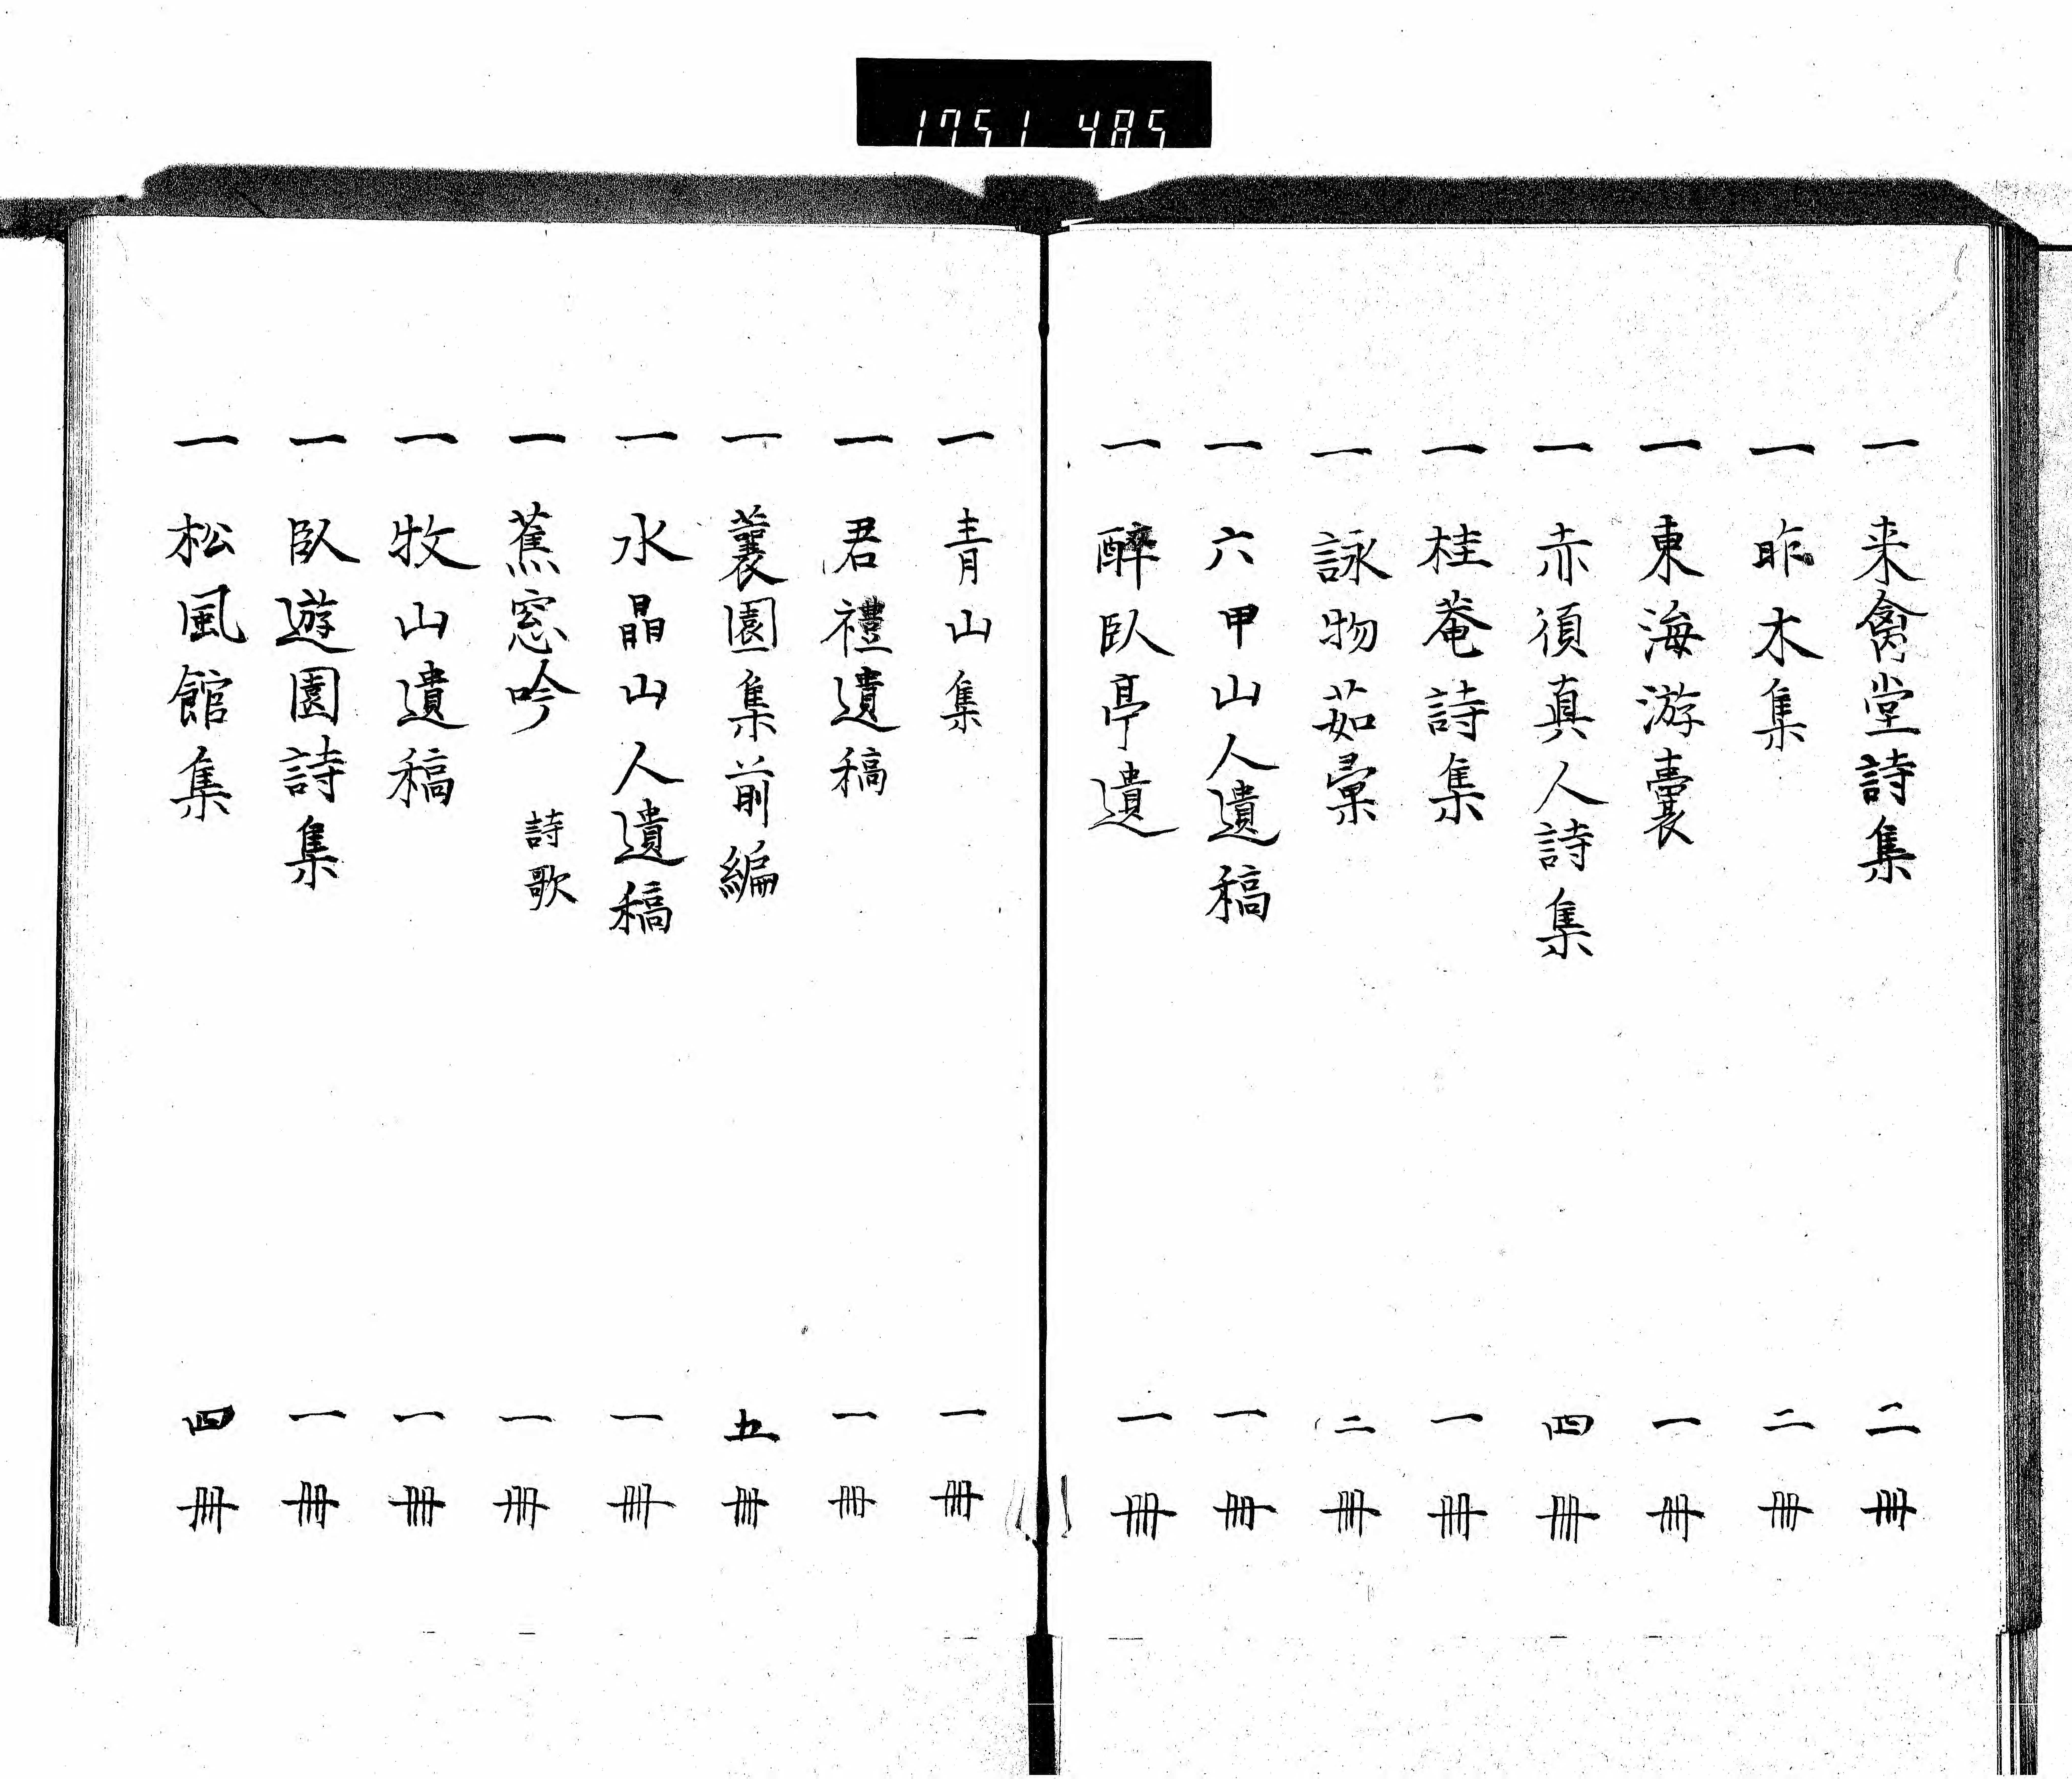 1751 485
一 来禽堂詩集 二冊
一 昨木集 二冊
一 東海游囊 一冊
一 赤須真人詩集 四冊
一 桂菴詩集 一冊
一 詠物茹彙 二冊
一 六甲山人遺稿 一冊
一 醉臥亭遺 一冊
一 青山集 一冊
一 君禮遺稿 一冊
一 蓑園集前編 五冊
一 水晶山人遺稿 一冊
一 蕉窓吟 詩歌 一冊
一 牧山遺稿 一冊
一 臥遊園詩集 一冊
一 松風館集 四冊